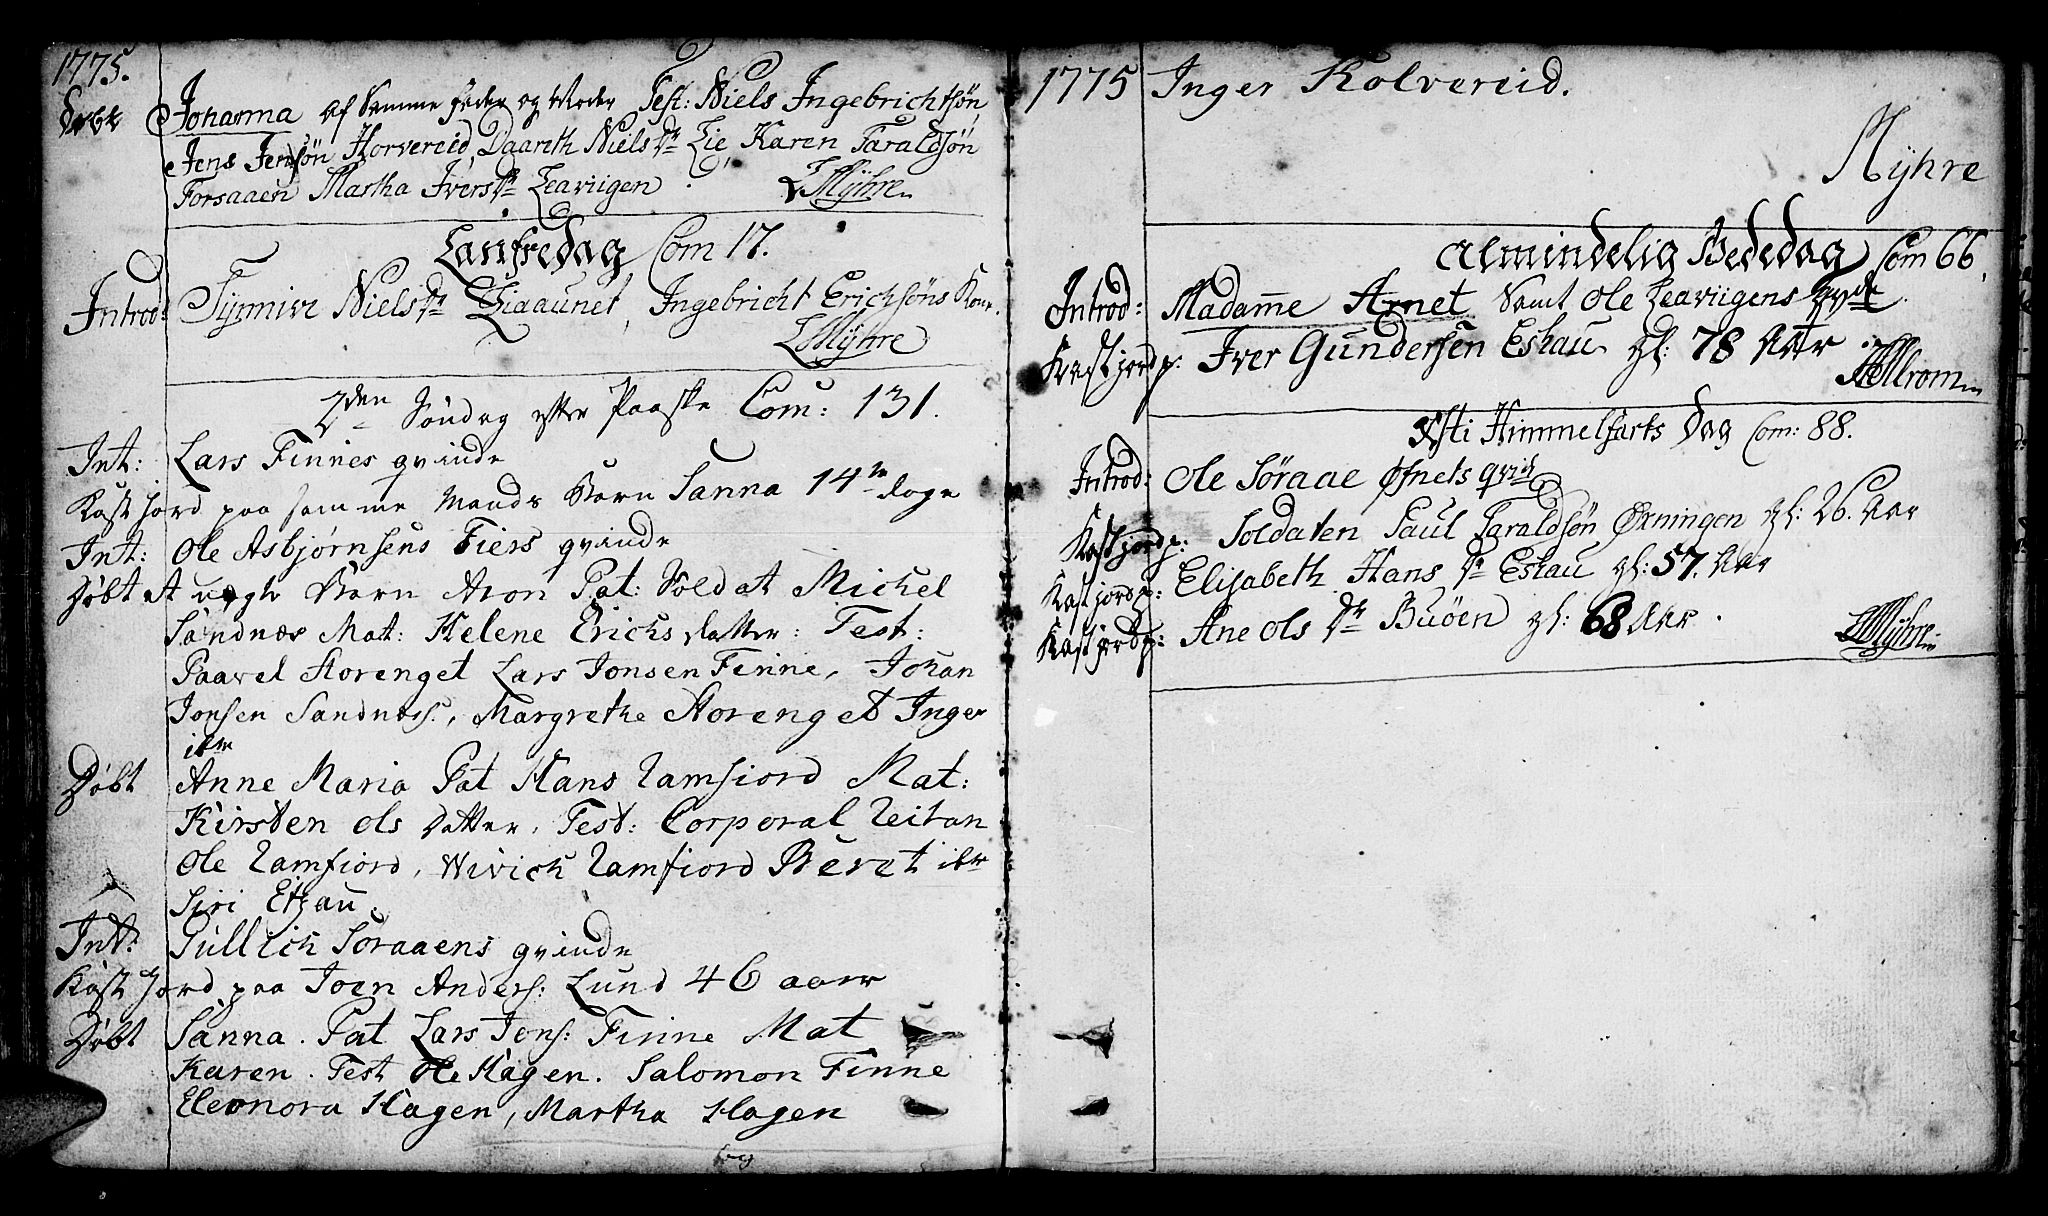 1775.
Døbt Johanna af Samme fader og Moder Test: Niels Ingebrichtsøn
Jens Jensøn Horvereid, Daareth Niels Dr Lie Karen Taraldsøn
Forsaaen Martha Ivers Dr Leaviigen LMÿhre
Lanfredag Com 17.
Introd: Niels Dr Liaaunet, Ingebricht Erichsøns Kone.
LMÿhre
2den Søndag efter Paaske Com: 131.
Int: Lars Finnes qvinde
Kast Jord paa samme Mands Barn Sanna 14 dage
Int: Ole Asbjørnsens Fiers qvinde
Døbt et uegte Barn Aron Pat: Soldat Michel
Sandnæs Mat: Helene Erichs datter: Test:
Paavel Storenget Lars Jonsen Finne, Johan
Jonsen Sandnæs:, Margrethe Storenget Inger
ibm
Døbt Anne Maria Pat Hans Ramfiord Mat:
Kirsten Ols datter. Test: Corporal Reitan
Ole Ramfiord, Wivich Ramfiord Beret ibm
Siri Etzau.
Int: Gullich Soraaens qvinde
Kast Jord paa Joen Anders: Lund 46 aar
Døbt Sanna. Pat Lars Jons: Finne Mat
Karen. Test Ole Hagen. Salomon Finne
Eleonora Hagen, Martha Hagen
og
1775 Inger Kolvereid.
Mÿhre
Almindelig Bededag Com 66.
Introd: Madame Arnet Samt Ole Leaviigens
Kast jord p: Iver Gundersen Eshau gl: 78 Aar
Xsti Himmelfarts Dag Com: 88.
Introd: Ole Søraae Øfnets qvi
Kast jord p: Soldaten Paul Taraldsøn Øxningen gl: 26. Aar
Kast jord p: Elisabeth Hans Dr Eshau gl: 57. Aar
Kast jord p: Ane Ols Dr Buøen gl: 68 Aar.
LMÿhre